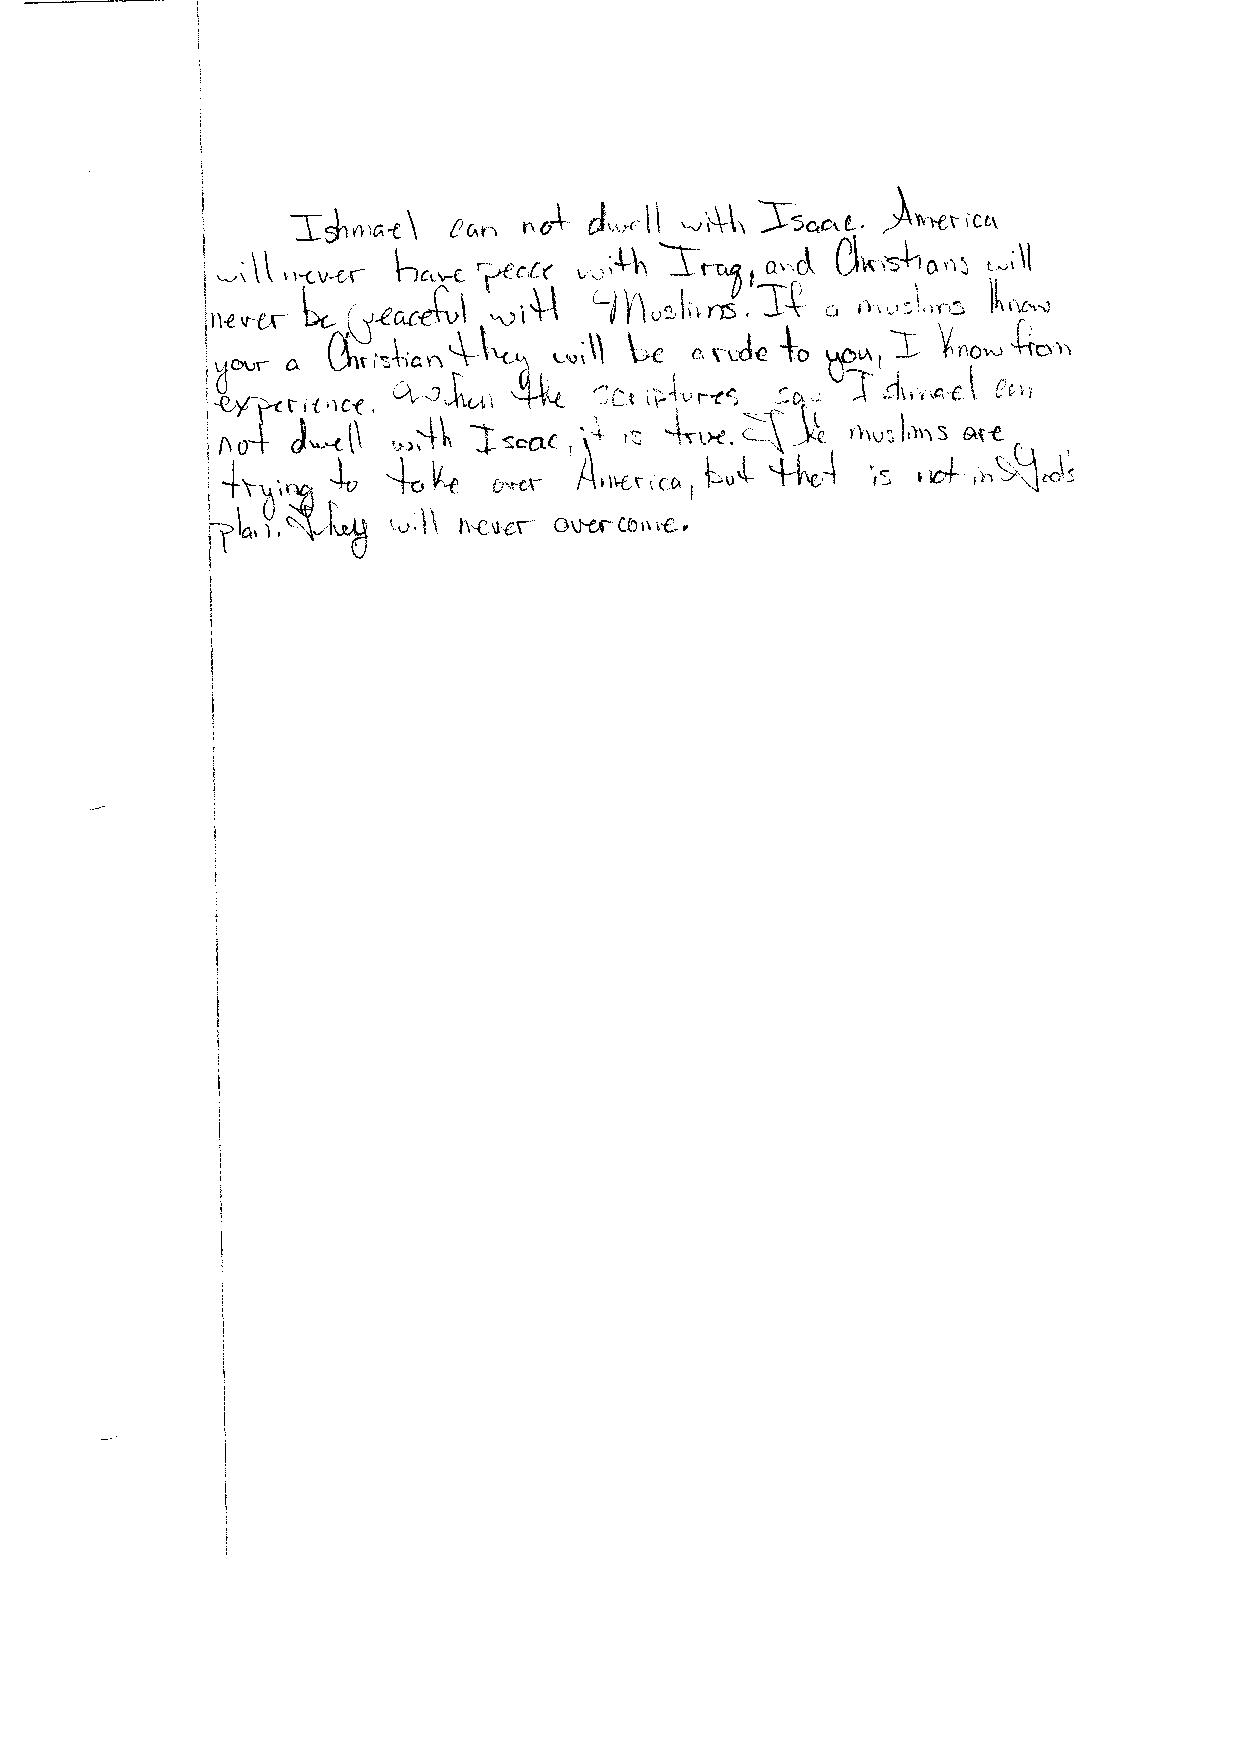 Ishmael can not dwell with Isaac. America
will never have peace with Iraq, and Christians will
never be peaceful with Muslims. If a muslims know
your a Christian they will be a rude to you, I know from
experience. When the scriptures say Ishmael can
not dwell with Isaac, it is true. The muslims are
trying to take over America, but that is not in God's
plan. They will never overcome.